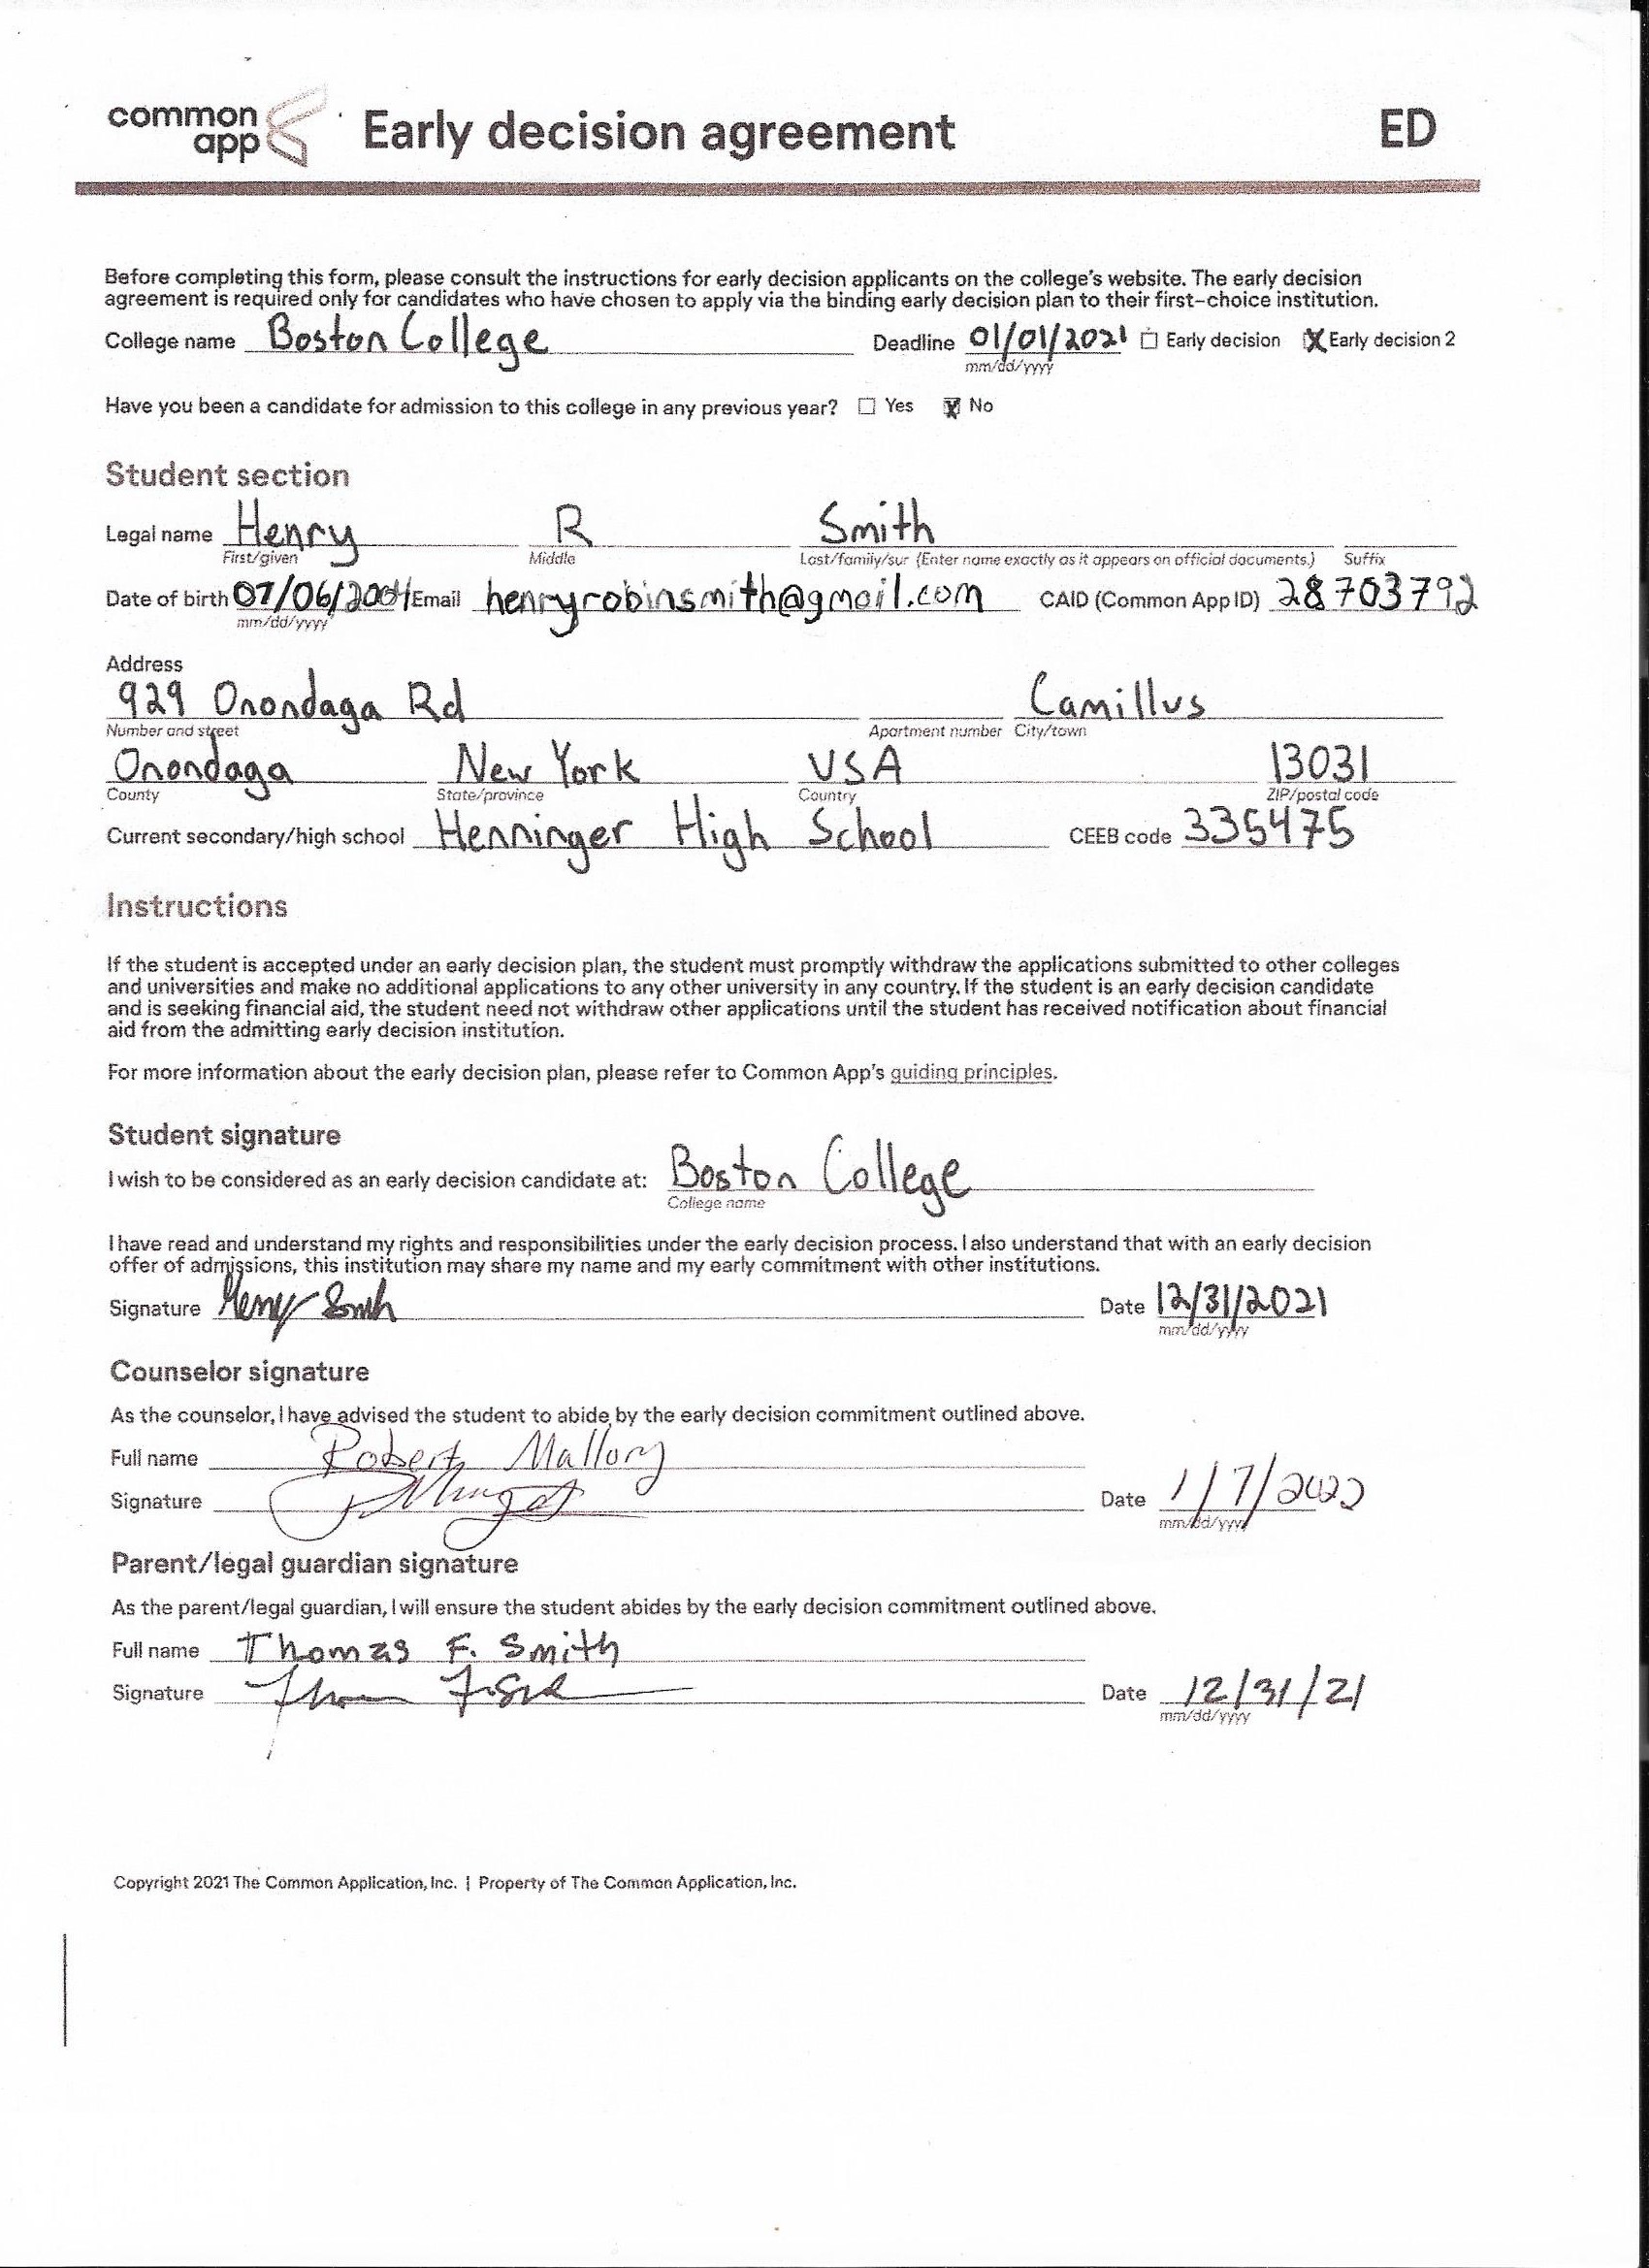 common app Early decision agreement ED
Before completing this form, please consult the instructions for early decision applicants on the college's website. The early decision
agreement is required only for candidates who have chosen to apply via the binding early decision plan to their first-choice institution.
College name Boston College Deadline 01/01/2021 Early decision X Early decision 2
mm/dd/yyyy
Have you been a candidate for admission to this college in any previous year? Yes X No
Student section
Legal name Henry R Smith
First/given Middle Last/family/sur (Enter name exactly as it appears on official documents.) Suffix
Date of birth 07/06/2004 Email henryrobinsmith@gmail.com CAID (Common App ID) 28703792
mm/dd/yyyy
Address
929 Onondaga Rd Camillus
Number and street Apartment number City/town
Onondaga New York USA 13031
County State/province Country ZIP/postal code
Current secondary/high school Henninger High School CEEB code 335475
Instructions
If the student is accepted under an early decision plan, the student must promptly withdraw the applications submitted to other colleges
and universities and make no additional applications to any other university in any country. If the student is an early decision candidate
and is seeking financial aid, the student need not withdraw other applications until the student has received notification about financial
aid from the admitting early decision institution.
For more information about the early decision plan, please refer to Common App's guiding principles.
Student signature
I wish to be considered as an early decision candidate at: Boston College
College name
I have read and understand my rights and responsibilities under the early decision process. I also understand that with an early decision
offer of admissions, this institution may share my name and my early commitment with other institutions.
Signature Henry Smith Date 12/31/2021
mm/dd/yyyy
Counselor signature
As the counselor, I have advised the student to abide by the early decision commitment outlined above.
Full name Robert Mallory
Signature Date 1/7/2022
mm/dd/yyyy
Parent/legal guardian signature
As the parent/legal guardian, I will ensure the student abides by the early decision commitment outlined above.
Full name Thomas F. Smith
Signature Date 12/31/21
mm/dd/yyyy
Copyright 2021 The Common Application, Inc. | Property of The Common Application, Inc.